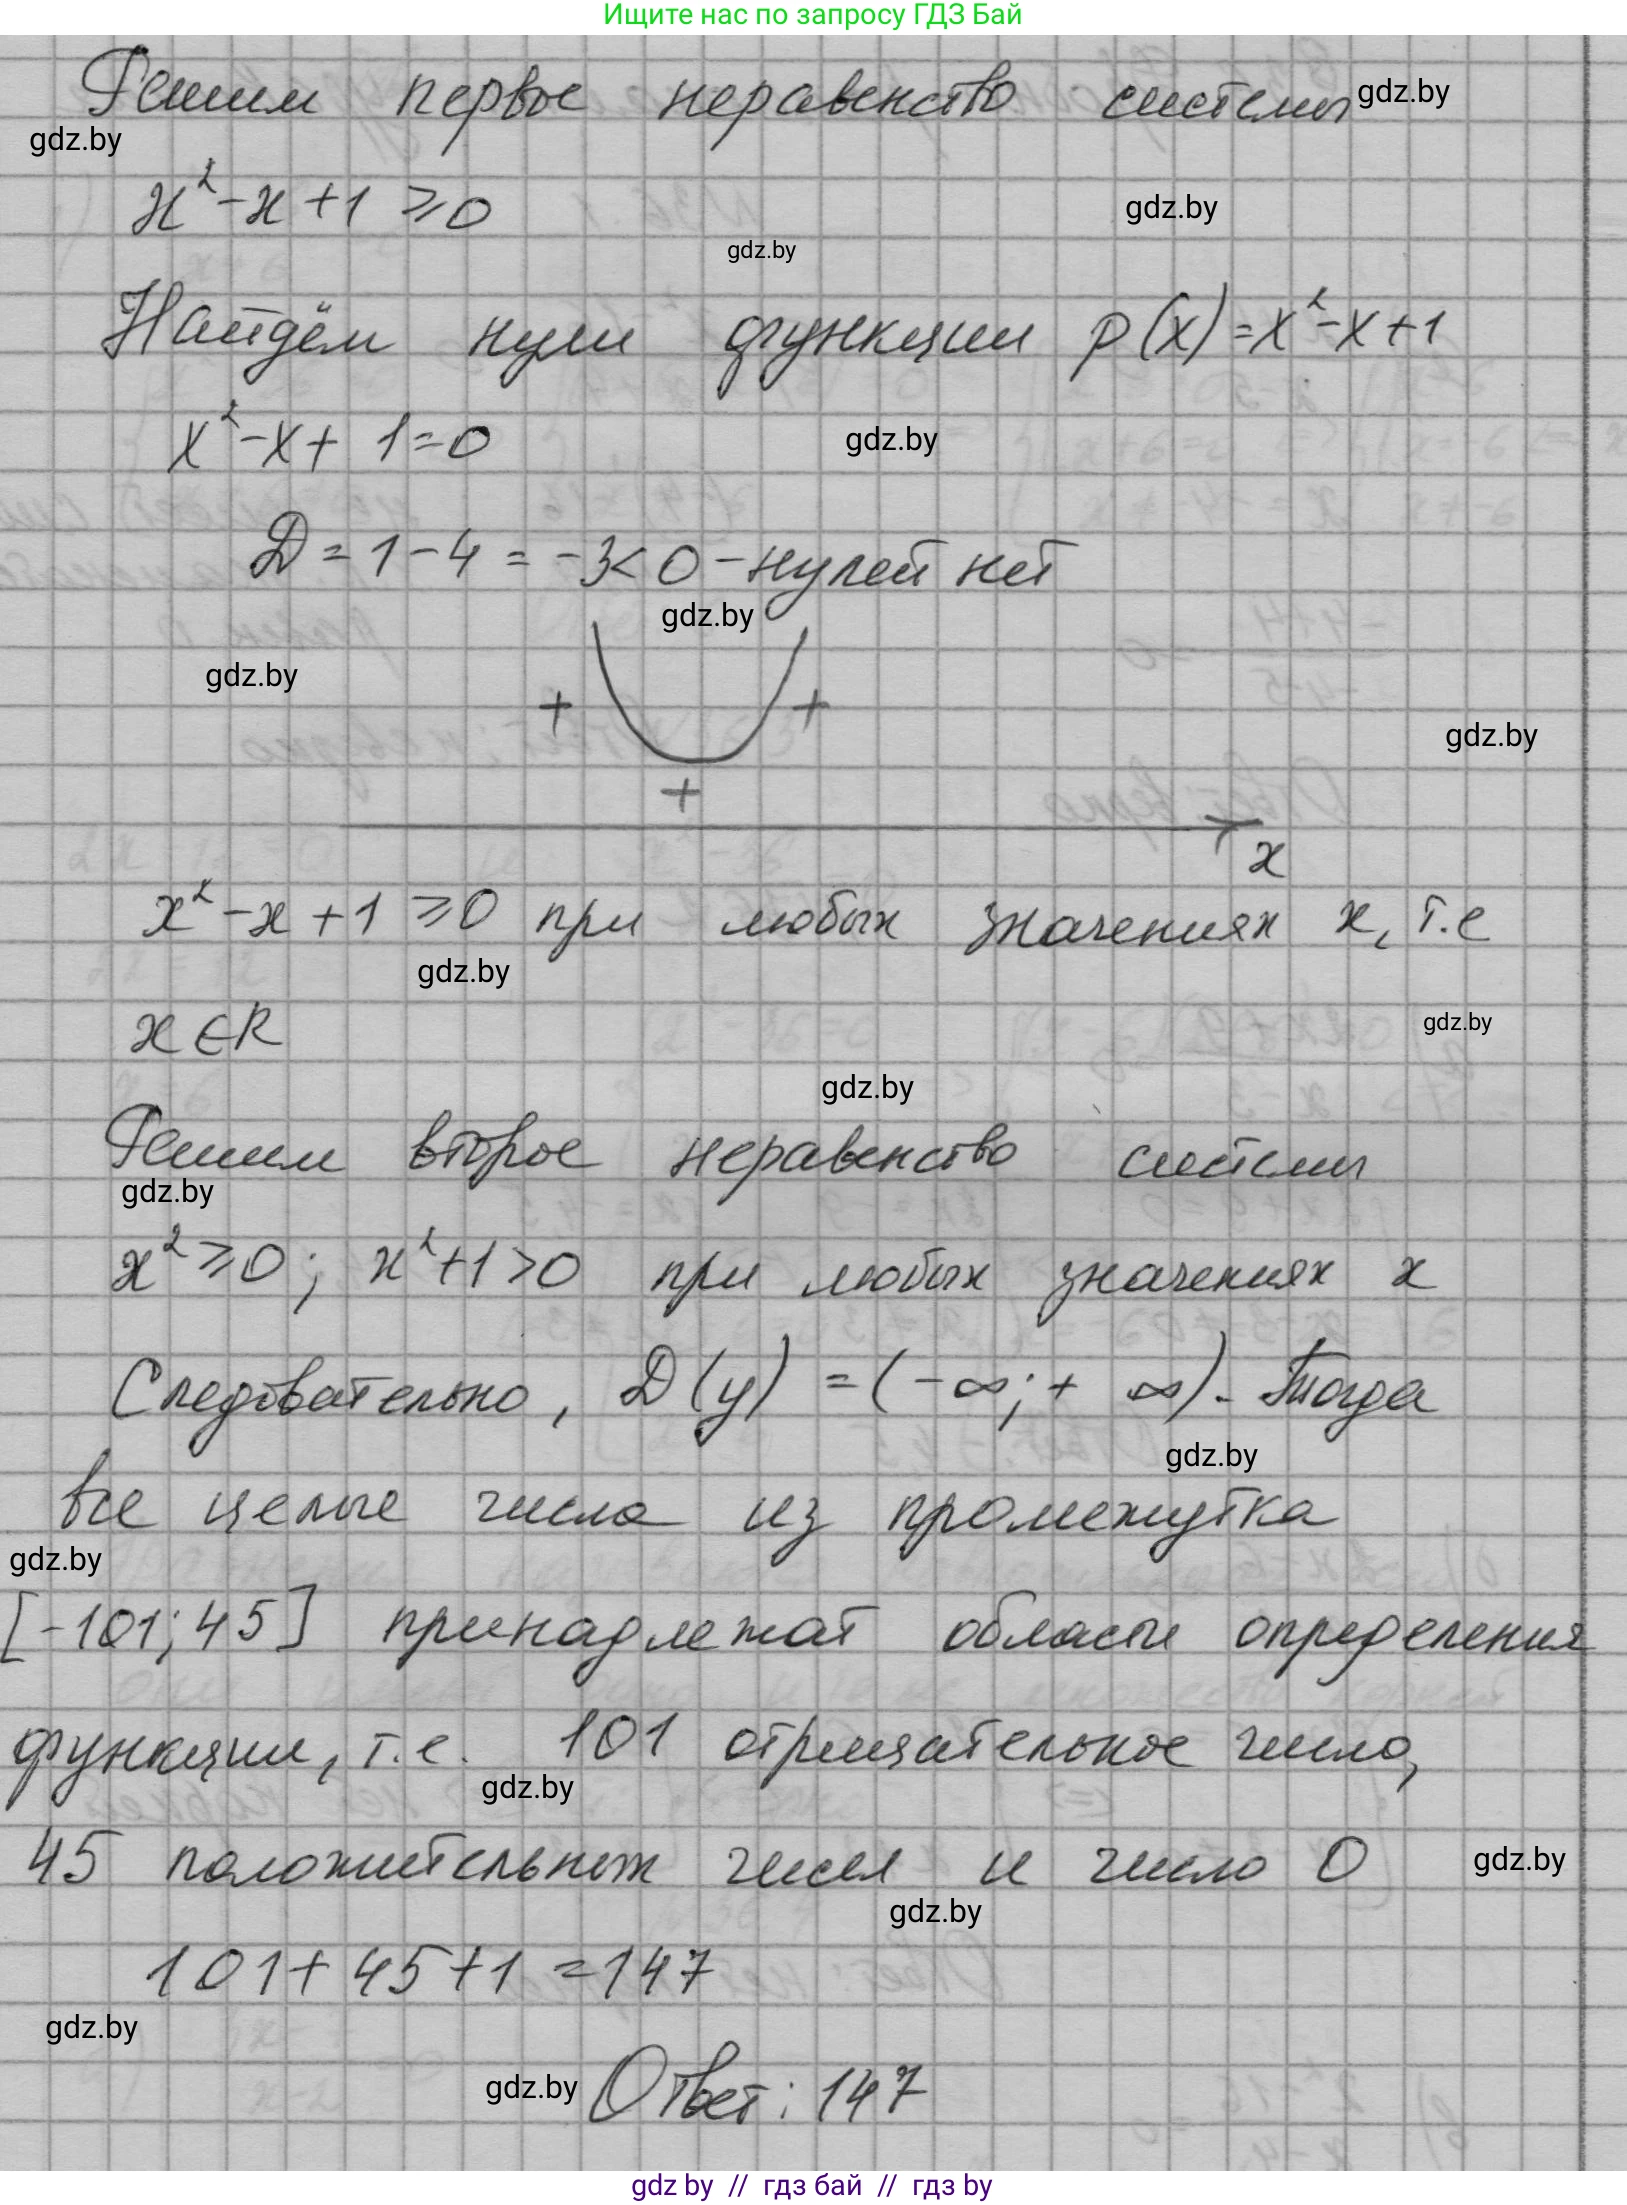 Ищите нас по запросу ГДЗ Бай
Решим первое неравенство системы gdz.by
gdz.by
x² - x + 1 ⩾ 0 gdz.by
gdz.by
Найдём нули функции p(x) = x² - x + 1
x² - x + 1 = 0 gdz.by
D = 1 - 4 = -3 < 0 - нулей нет
gdz.by
gdz.by
+ +
gdz.by
+
x
x² - x + 1 ⩾ 0 при любых значениях x, т.е
gdz.by
x ∈ R gdz.by
gdz.by
Решим второе неравенство системы
gdz.by
x² ⩾ 0; x² + 1 > 0 при любых значениях x
Следовательно, D(y) = (-∞; + ∞). Тогда
gdz.by
все целые числа из промежутка
gdz.by
[-101; 45] принадлежат области определения
функции, т.е. 101 отрицательное число,
gdz.by
45 положительных чисел и число 0 gdz.by
gdz.by
101 + 45 + 1 = 147
gdz.by
gdz.by Ответ: 147
gdz by // гдз бай // гдз by